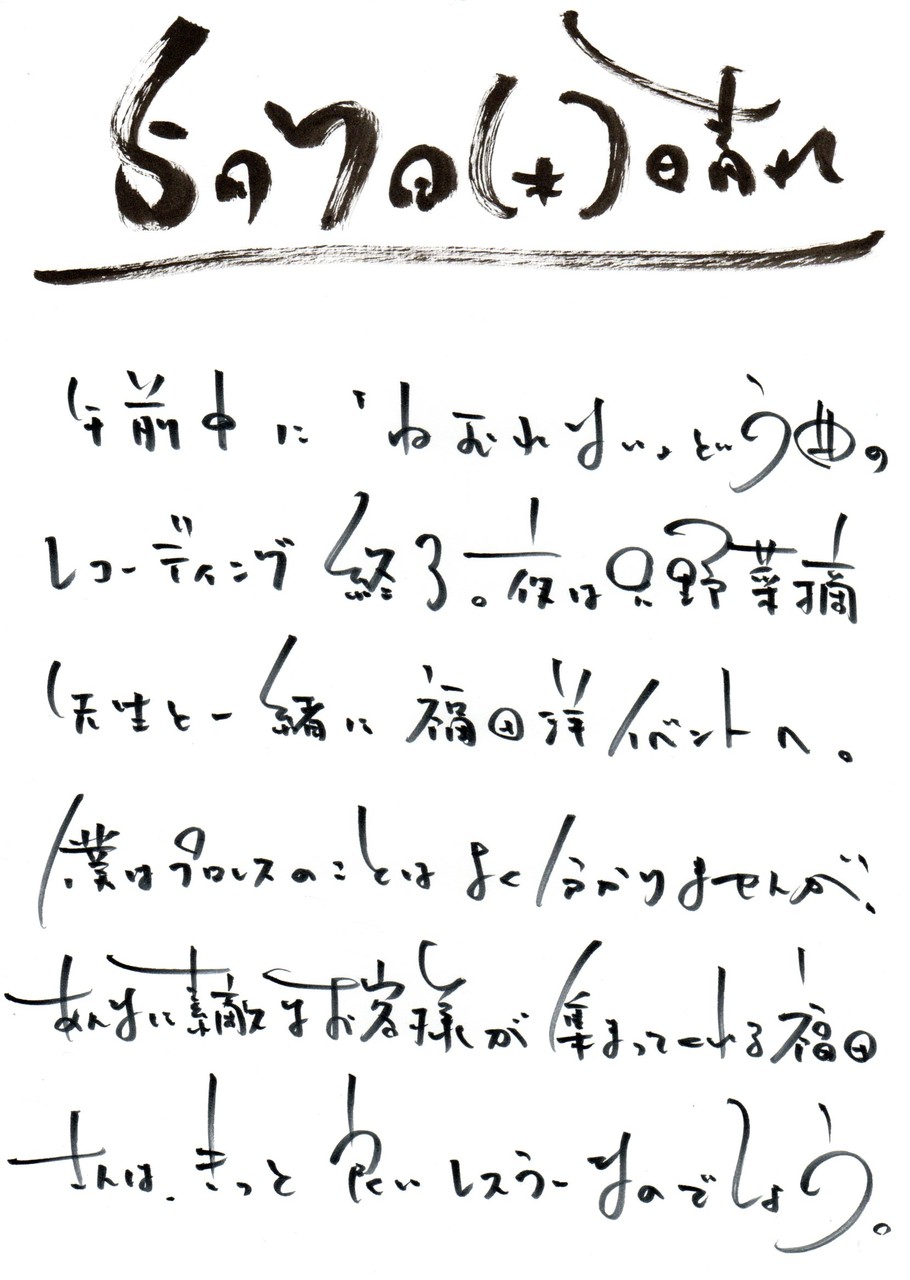 5月7日(木)晴れ
午前中に「ねむれない」という曲の
レコーディング終了。夜は只野菜摘
先生と一緒に福田洋イベントへ。
僕はプロレスのことはよく分かりませんが、
あんなに素敵なお客様が集まってくれる福田
さんは、きっと良いレスラーなのでしょう。